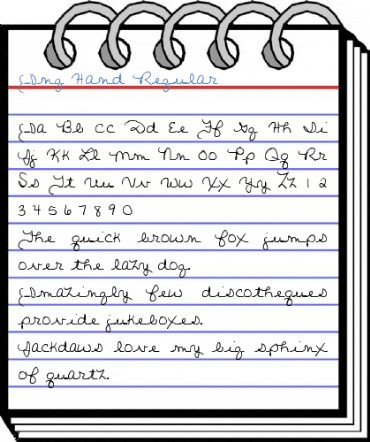 Ang Hand Regular
Aa Bb Cc Dd Ee Ff Gg Hh Ii
Jj Kk Ll Mm Nn Oo Pp Qq Rr
Ss Tt Uu Vv Ww Xx Yy Zz 1 2
3 4 5 6 7 8 9 0
The quick brown fox jumps
over the lazy dog.
Amazingly few discotheques
provide jukeboxes.
Jackdaws love my big sphinx
of quartz.